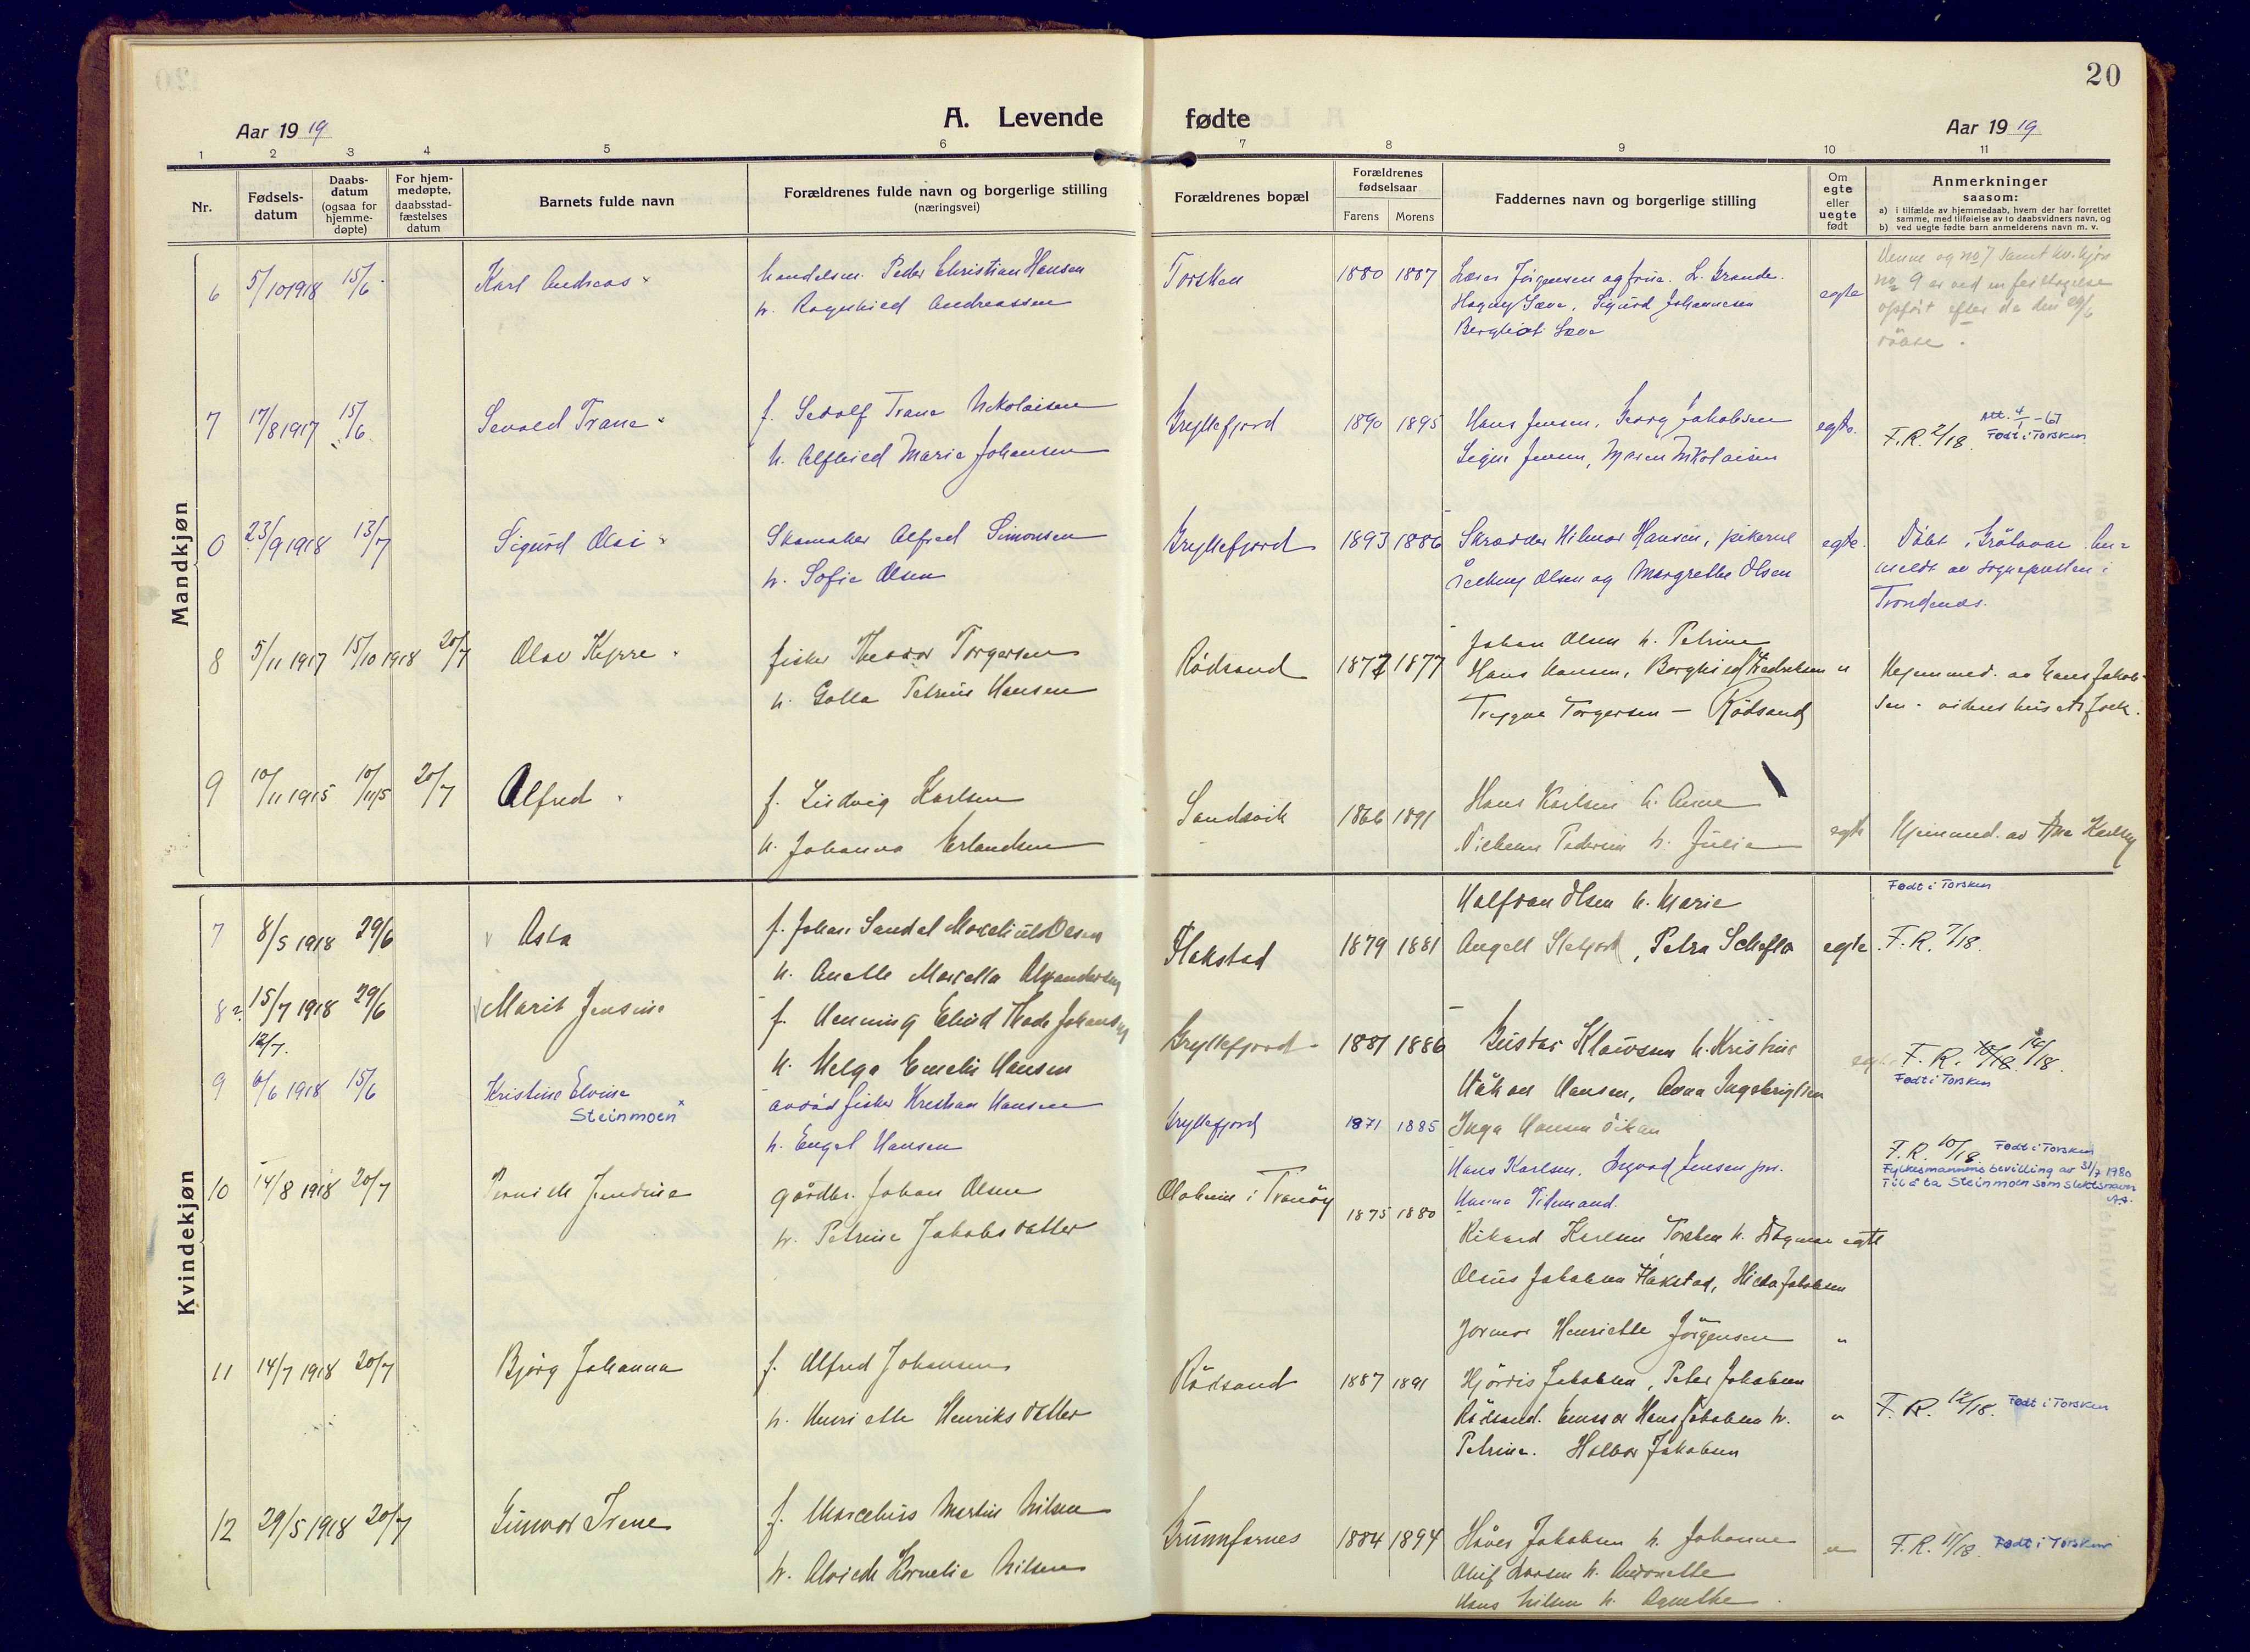 20
A. Levende fødte
Aar 1919
Aar 1919
1 2 3 4 5 6 7 8 9 10 11
Nr.
Fødsels-
datum
Daabs-
datum
(ogsaa for
hjemme-
døpte)
For hjem-
medøpte,
daabsstad-
fæstelses
datum
Barnets fulde navn
Forældrenes fulde navn og borgerlige stilling
(næringsvei)
Forældrenes bopæl
Forældrenes
fødselsaar
Farens Morens
Faddernes navn og borgerlige stilling
Om
egte
eller
uegte
født
Anmerkninger
saasom:
a) i tilfælde av hjemmedaab, hvem der har forrettet
samme, med tilføielse av to daabsvidners navn, og
b) ved uegte fødte barn anmelderens navn m. v.
Mandkjøn
6 5/10 1918 15/6 Karl Andreas
handelsm. Peder Christian Hansen
h. Ragnhild Andreassen
Torsken 1880 1887
Lærer Jörgensen og frue. L. Brande.
Hagny Sæve, Sigurd Johannesen
Bergliot Sæve
egte
Denne og no 7 samt kv.kjøn
no 9 er ved en feiltagelse
opført efter de den 29/6
döbte.
7 17/8 1917 15/6 Sevald Trane
f. Sedolf Trane Nikolaisen
h. Alfhild Marie Johansen
Gryllefjord 1890 1895
Hans Jensen, Georg Jakobsen
Signe Jensen, Maren Nikolaisen
egte.
F.R. 2/18.
Att. 4/1-67
Født i Torsken
0 23/9 1918 13/7 Sigurd Olai
Skomaker Alfred Simonsen
h. Sofie Olsen
Gryllefjord 1893 1886
Skrædder Hilmar Hansen, pikerne
Solveig Olsen og Margrethe Olsen
egte.
Döbt i Grötavær an-
meldt av sognepresten i
Trondenes.
8 5/11 1917 15/10 1918 20/7 Olav Kyrre
fisker Theodor Torgersen
h. Golla Petrine Hansen
Rödsand 1872 1877
Johan Olsen h. Petrine
Hans Hansen, Borghild Fredriksen
Trygve Torgersen — Rödsand
"
Hjemmed. av Hans Jakob-
sen - vidner husets folk.
9 10/11 1915 10/11 15 20/7 Alfred
f. Ludvig Karlsen
h. Johanna Erlandsen
Sandsvik 1866 1891
Hans Karlsen h. Anna
Vilhelm Pedersen h. Julie
egte
Hjemmed. av Karlsen
Kvindekjøn
7 8/5 1918 29/6 Asta
f. Johan Sandal Marcelius Olsen
h. Anette Marcella Alexandersen
Flakstad 1879 1881
Halfdan Olsen h. Marie
Angell Slefjord, Petra Schefte
egte
Født i Torsken
F.R. 7/18.
8 15/7 1918 29/6 Marit Jensine
12/7.
f. Henning Eluid Thode Johansen
h. Helga Emelie Hansen
Gryllefjord 1881 1886
Gustav Klawsen h. Kristine
Håkon Hansen, Anna Ingebrigtsen
egte
F.R. 10/18 /18.
Født i Torsken
9 6/6 1918 15/6 Kristine Elvine
Steinmoen
avdöd fisker Kristian Hansen
h. Engel Hansen
Gryllefjord 1871 1885
Inga Hansen
Hans Karlsen, Ingvald Jensen jnr.
Hanna Tidemand.
F.R. 10/18. Født i Torsken
Fylkesmannens bevilling av 31/7 1980
Til å ta Steinmoen som slektsnavn
10 14/8 1918 20/7 Pernille Jendine
gårdbr. Johan Olsen
h. Petrine Jakobsdatter
Olaheim i Tranöy 1875 1880
Rikard Karlsen Torsken h. Dagmar
Oleus Jakobsen Flakstad, Hilda Jakobsen
egte
11 14/7 1918 20/7 Bjørg Johanna
f. Alfred Johansen
h. Henriette Henriksdatter
Rödsand 1887 1891
Jormor Henriette Jörgensen "
Hjördis Jakobsen, Peter Jakobsen
Rödsand. Hans Jakobsen h.
Petrine. Halvor Jakobsen
"
F.R. 12/18. Født i Torsken
12 29/5 1918 20/7 Gunvor Irene
f. Marcelius Martin Nilsen
h. Alvilde Kornelie Nilsen
Grunnfarnes 1884 1894
Håvar Jakobsen h. Johanne
Oluf Larsen h. Antonette
Hans Nilsen h. Agnethe
"
F.R. 11/18. Født i Torsken